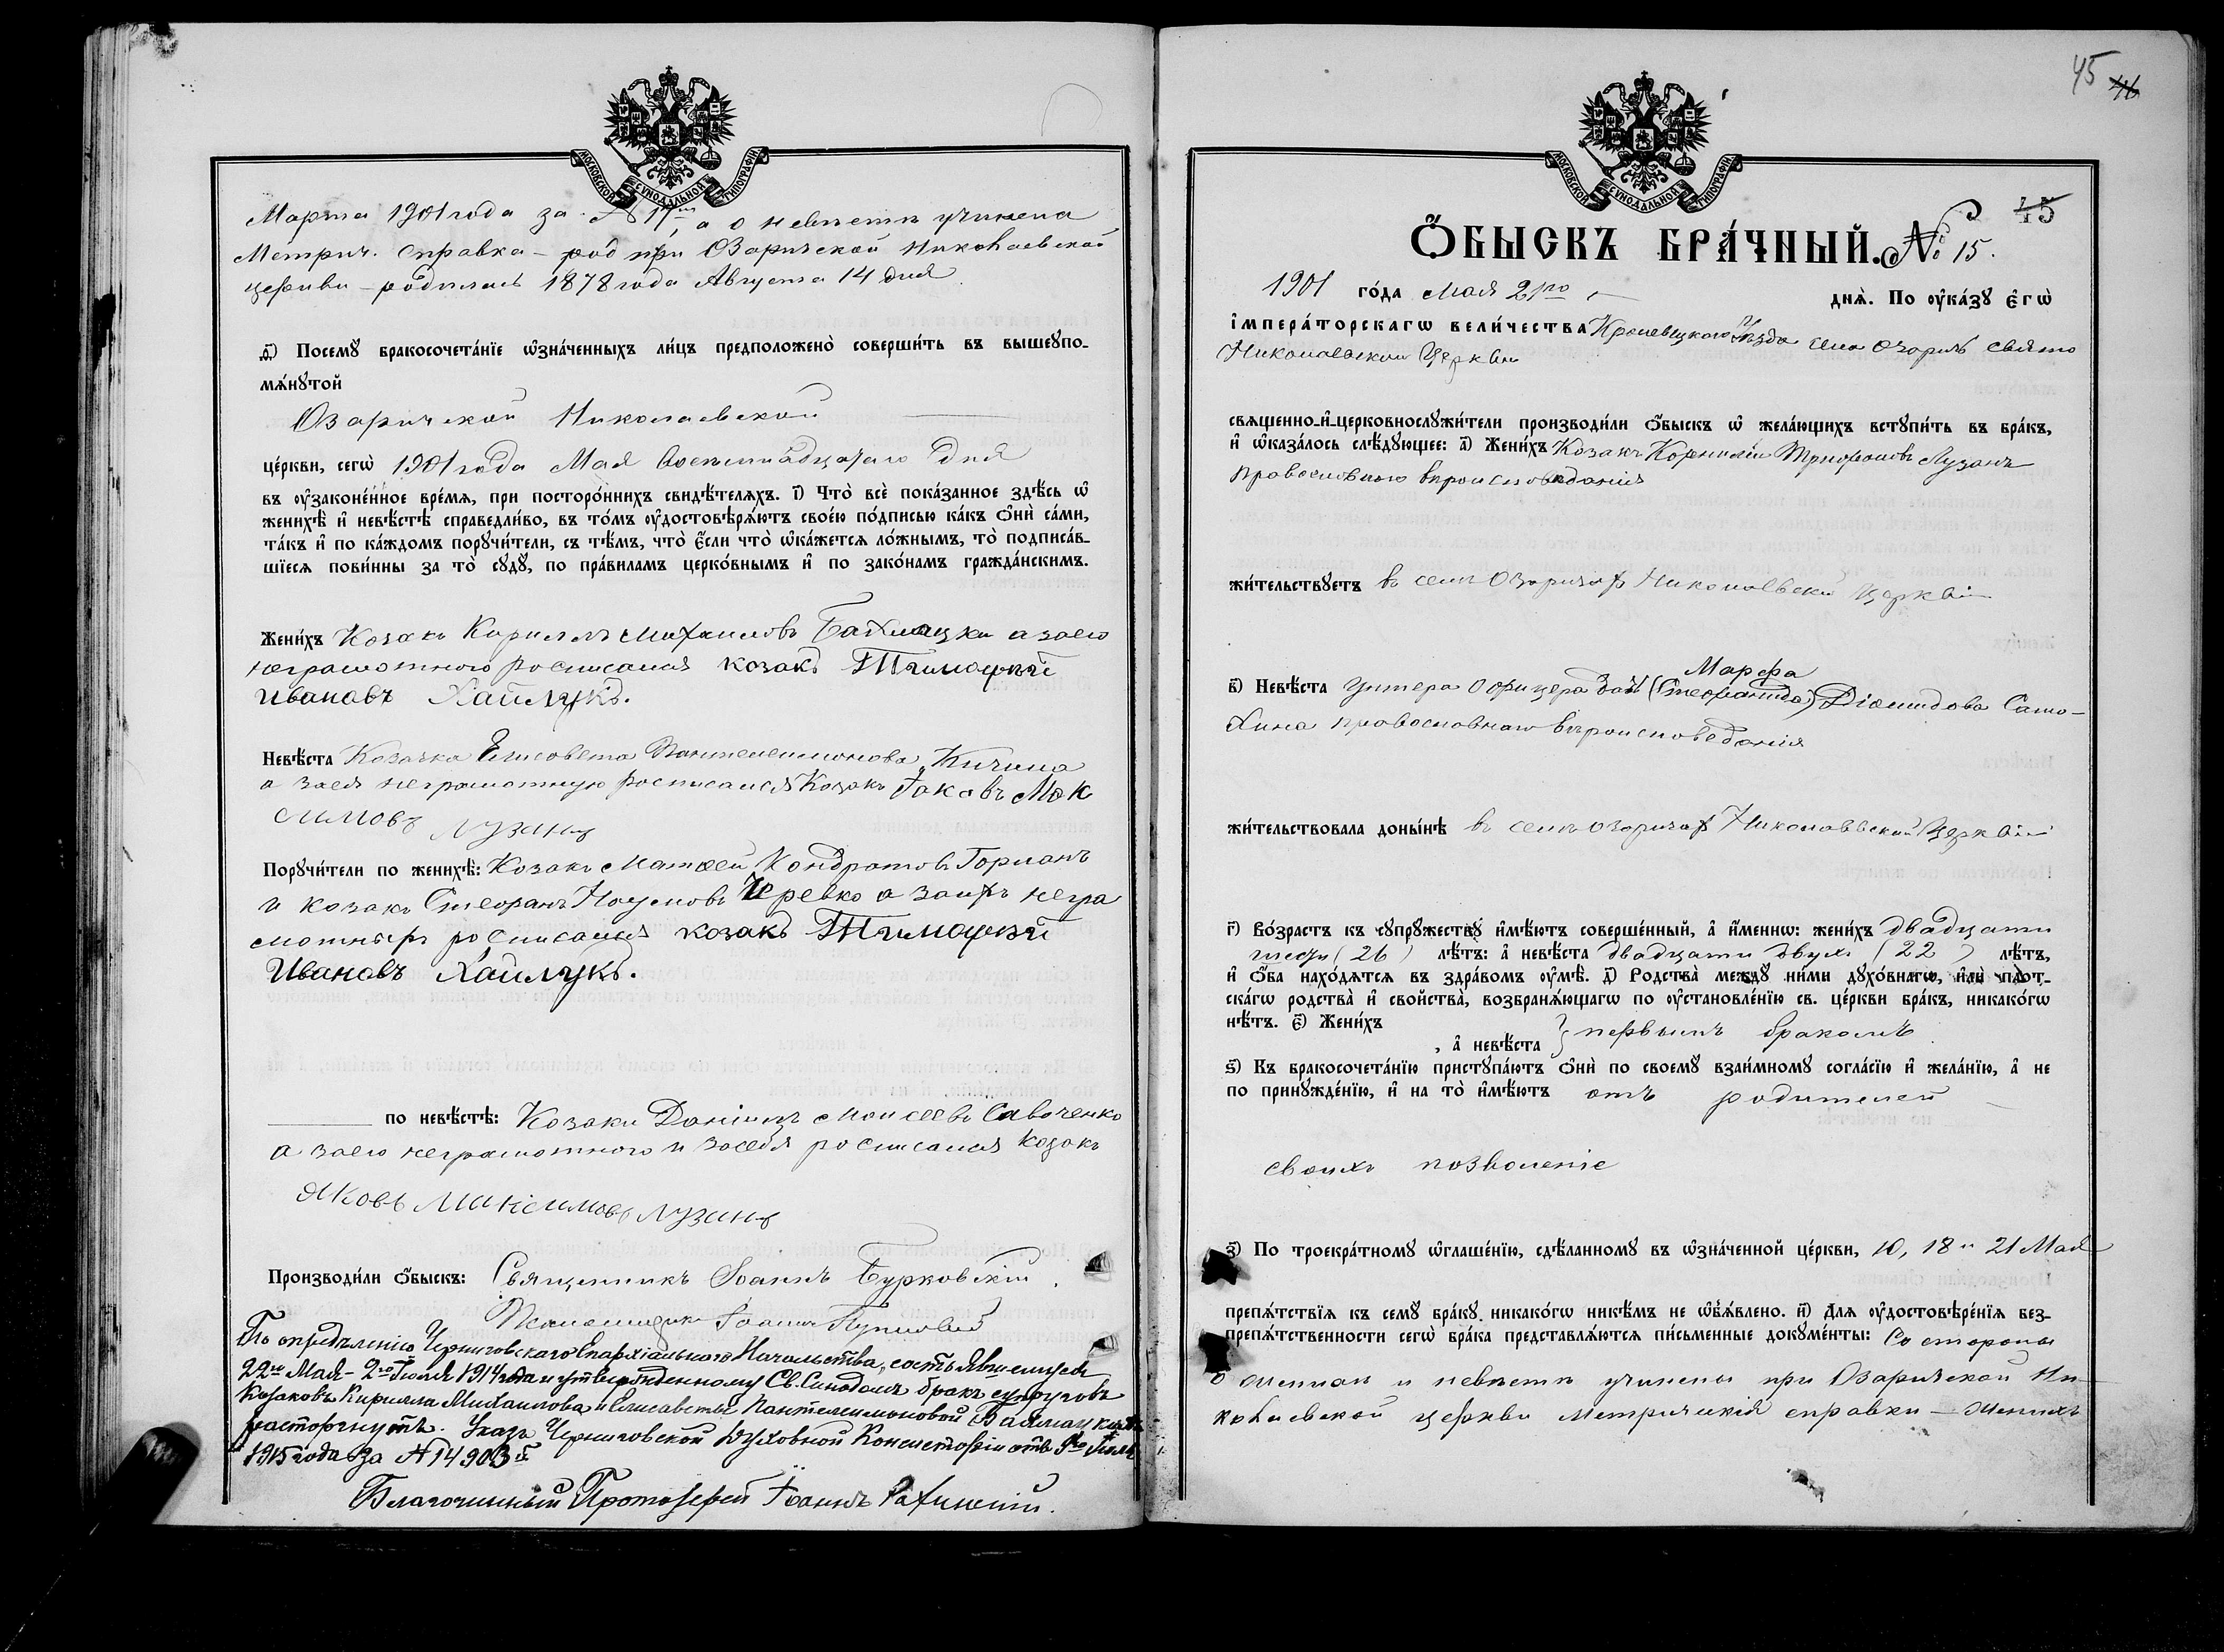 МОСКОВСКОЙ СУНОДАЛЬНОЙ ТИПОГРАФІИ
Марта 1901 года за № 17, а о невѣстѣ учинена
Метрич. справка – род при Озаричской Николаевской
церкви – родилась 1878 года Августа 14 дня
д҃) Посемꙋ̀ бракосочета́нїе ѡ҆зна́ченныхъ ли́цъ предположено̀ соверши́ть въ вышеꙋпо-
мѧ́нꙋтой
Озаричской Николаевской
це́ркви, сегѡ̀ 1901 года Мая восемнадцатаго дня
въ ᲂу҆зако́ненное вре́мѧ, при посторо́ннихъ свидѣ́телѧхъ. і҃) Что̀ всѐ пока́занное здѣ́сь ѡ҆
женихѣ̀ и҆ невѣ́стѣ справедли́во, въ то́мъ ᲂу҆достовѣрѧ́ютъ свое́ю по́дписью ка́къ ѻ҆нѝ са́ми,
та́къ и҆ по ка́ждомъ порꙋчи́тели, съ тѣ́мъ, что̀ є҆́сли что̀ ѡ҆ка́жетсѧ ло́жнымъ, то̀ подписа́в-
шїесѧ пови́нны за то̀ сꙋдꙋ̀, по пра́виламъ церко́внымъ и҆ по зако́намъ гражда́нскимъ.
Жени́хъ Козакъ Кириллъ Михаиловъ Бахмацки а заего
неграмотного росписался козакъ Тимофѣй
Ивановъ Хайлукъ.
Невѣ́ста Козачка Елисовета Пантелеимонова Кичина
а заея неграмотную росписался Козакъ Іаковъ Мак
симовъ Лузанъ
Порꙋчи́тели по женихѣ̀: Козакъ Матѳей Кондратовъ Горианъ
и козакъ Стефанъ Наумовъ Черевко а заихъ негра
мотныхъ росписался козакъ Тимофѣй
Ивановъ Хайлукъ.
по невѣ́стѣ: Козаки Даніилъ Моисеевъ Савоченко
а заего неграмотного и засебя росписался козакъ
Яковъ Максимовъ Лузанъ
Производи́ли ѻ҆́быскъ: Священникъ Іоаннъ Бурковскій.
Псаломщикъ Іоаннъ
По опредѣленію Черниговскаго Епархіальнаго Начальства, состоявшемуся
22го Мая – 2го Іюля 1914 года и утвержденному Св. Синодомъ бракъ супруговъ
Козаковъ Кирилла Михаилова и Елисаветы Пантелеимоновой Бахмацкихъ
расторгнутъ. Указъ Черниговской Духовной Консисторіи отъ Іюля
1915 года за № 14903й
Благочинный Протоіерей Іоаннъ
45 46
МОСКОВСКОЙ СУНОДАЛЬНОЙ ТИПОГРАФІИ
45
Ѻ҆́БЫСКЪ БРА́ЧНЫЙ. № 15.
1901 го́да Мая 21го днѧ̀. По ᲂу҆ка́зꙋ є҆гѡ̀
і҆мпера́торскагѡ вели́чества Кролевецкаго Уѣзда села Озаричъ Свято
Николаевской Церкви
свѧщенно-и҆-церковнослꙋжи́тели производи́ли ѻ҆́быскъ ѡ҆ жела́ющихъ встꙋпи́ть въ бра́къ,
и҆ ѡ҆каза́лось слѣ́дꙋющее: а҃) Жени́хъ Козакъ Корнилій Трифоновъ Лузанъ
православного вѣроисповѣданія
жи́тельствꙋетъ въ селѣ Озаричах Николаевской Церкви
в҃) Невѣ́ста Унтера Офицера дочь (Стефанида) Марфа Діомидова Само-
хина православнаго вѣроисповеданія
жи́тельствовала доны́нѣ въ селѣ Озаричах Николаевской Церкви
г҃) Во́зрастъ къ сꙋпрꙋ́жествꙋ и҆мѣ́ютъ соверше́нный, а҆ и҆́меннѡ: жени́хъ двадцати
шести (26) лѣ́тъ: а҆ невѣ́ста двадцати двухъ (22) лѣ́тъ,
и҆ ѻ҆́ба нахо́дѧтсѧ въ здра́вомъ ᲂу҆мѣ̀. д҃) Родства̀ междꙋ̀ ни́ми дꙋхо́внагѡ, и҆лѝ пло́т-
скагѡ родства̀ и҆ свойства̀, возбранѧ́ющагѡ по ᲂу҆становле́нїю св. це́ркви бра́къ, никако́гѡ
нѣ́тъ. є҃) Жени́хъ
, а҆ невѣ́ста } первымъ бракомъ
ѕ҃) Къ бракосочета́нїю пристꙋпа́ютъ ѻ҆нѝ по своемꙋ̀ взаи́мномꙋ согла́сїю и҆ жела́нїю, а҆ не
по принꙋжде́нїю, и҆ на то̀ и҆мѣ́ютъ отъ родителей
своихъ позволеніе
з҃) По троекра́тномꙋ ѡ҆глаше́нїю, сдѣ́ланномꙋ въ ѡ҆зна́ченной це́ркви, 10, 18 и 21 Мая
препѧ́тствїѧ къ семꙋ̀ бра́кꙋ никако́гѡ никѣ́мъ не ѡ҆б̾ѧ́влено. и҃) Длѧ ᲂу҆достовѣре́нїѧ без-
препѧ́тственности сегѡ̀ бра́ка представлѧ́ютсѧ пи́сьменные докꙋме́нты: Со стороны
о женихѣ и невѣстѣ учинены при Озаричской Ни-
колаевской церкви Метрическія справки – Женихъ